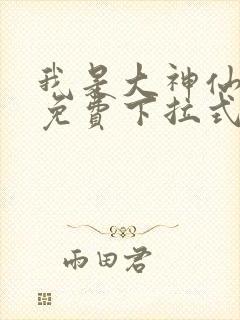 我是大神仙
免費下拉式
雨田君